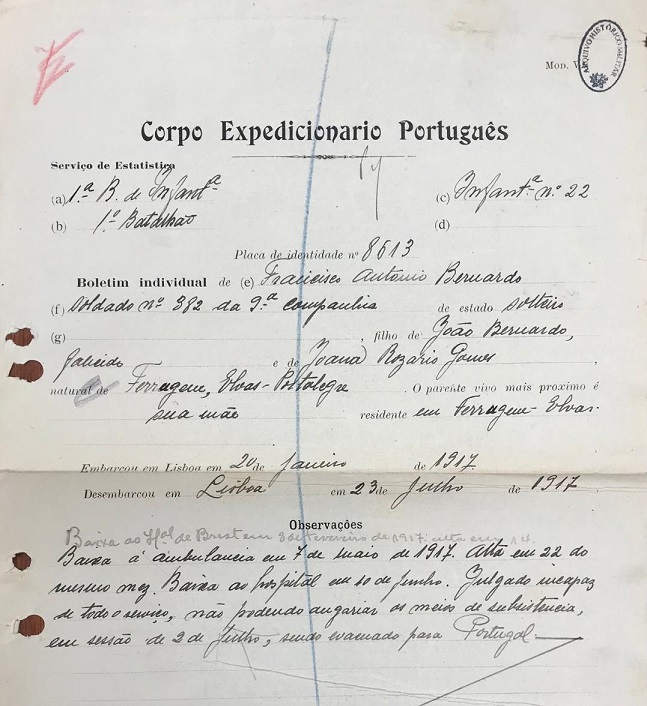 Mod.
ARQUIVO HISTÓRICO MILITAR
Corpo Expedicionario Português
Serviço de Estatistica
(a) 1.ª B. de Infant.ª (c) Infant.ª nº 22
(b) 1.º Batalhão (d)
Placa de identidade nº 8613
Boletim individual de (e) Francisco Antonio Bernardo
(f) Soldado nº 382 da 9.ª Companhia de estado solteiro
(g) , filho de João Bernardo,
falecido e de Joana Rozario Gomes ,
natural de Ferragem, Elvas-Portalegre . O parente vivo mais proximo é
sua mãe residente em Ferragem-Elvas.
Embarcou em Lisboa em 20 de Janeiro de 1917
Desembarcou em Lisboa em 23 de Julho de 1917.
Observações
Baixa ao H.al de Brest em 3 de fevereiro de 1917 alta em 14.
Baixa á ambulancia em 7 de maio de 1917. Alta em 22 do
mesmo mez. Baixa ao hospital em 10 de Junho. Julgado incapaz
de todo o serviço, não podendo angariar os meios de subsistencia,
em sessão de 2 de Julho, sendo evacuado para Portugal